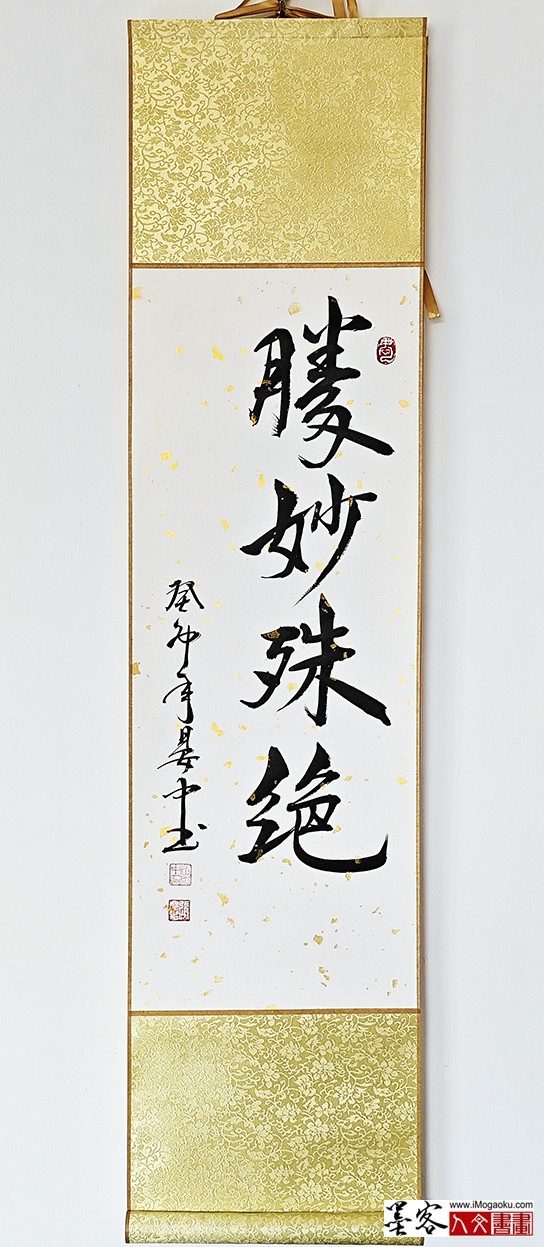 勝妙殊绝
癸卯年晏中书
墨客
www.iMogaoku.com
人文書畫